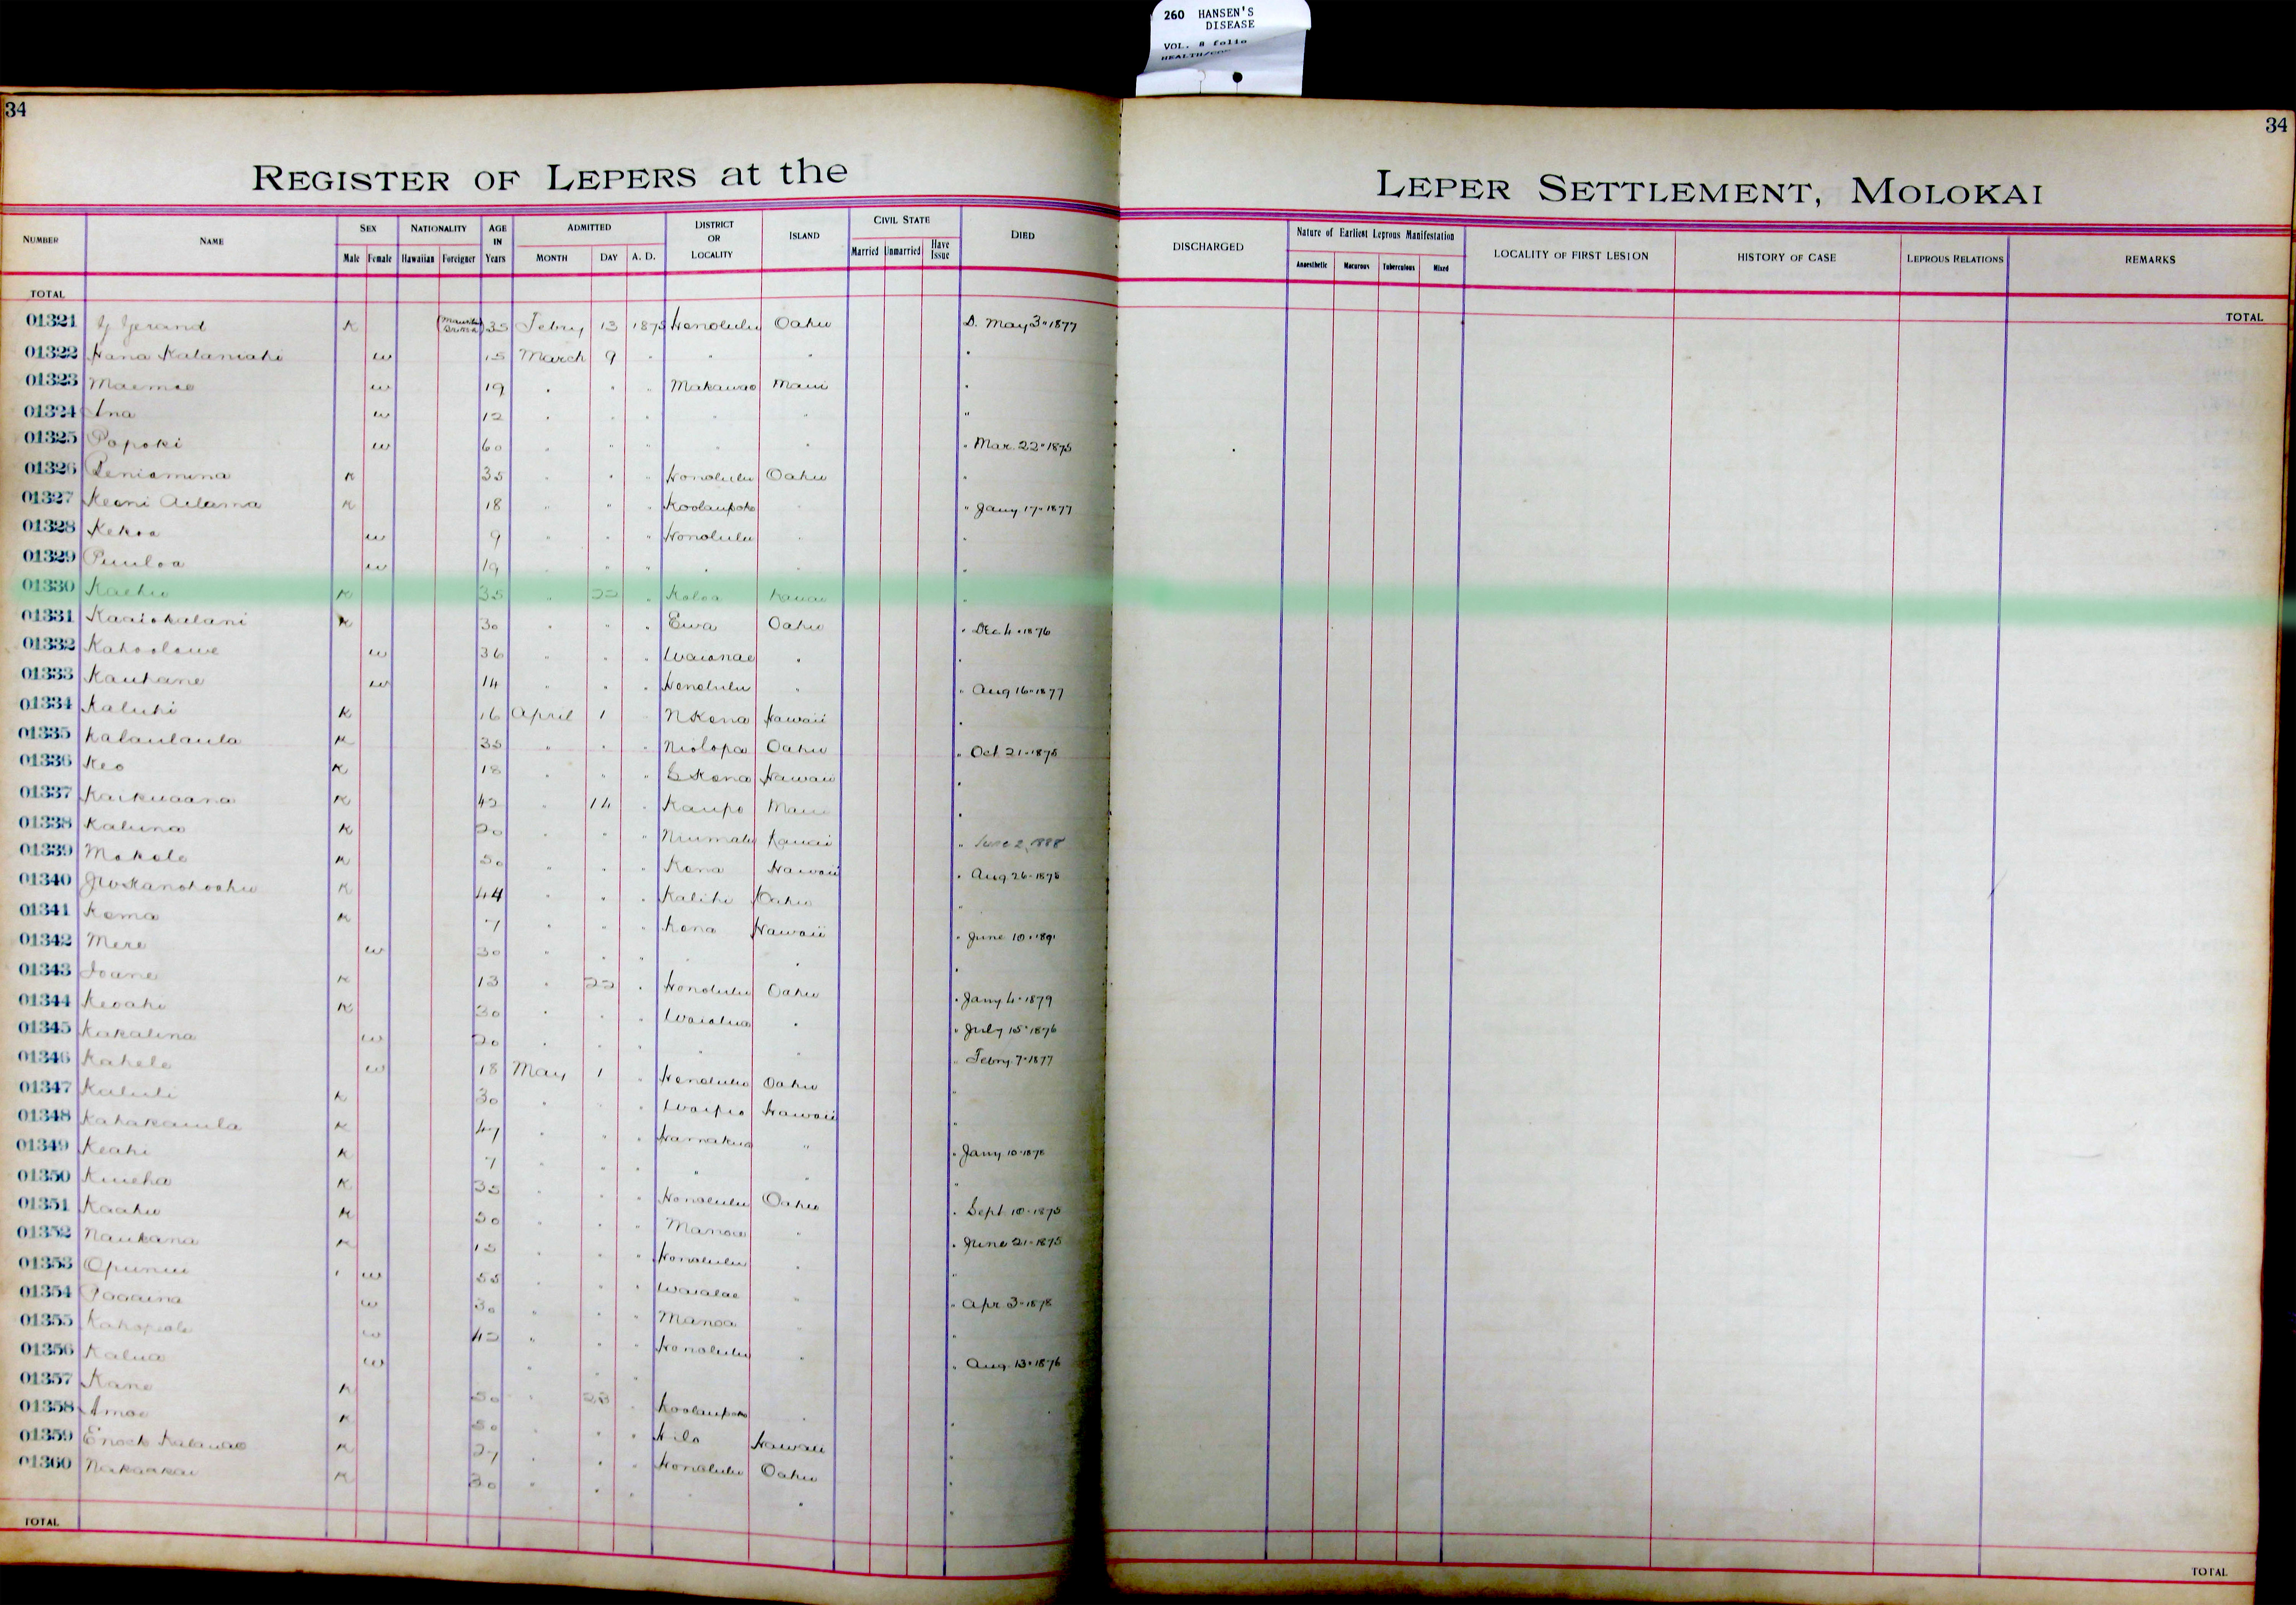 260 HANSEN'S
DISEASE
VOL. 8 folio
34
34
REGISTER OF LEPERS at the
LEPER SETTLEMENT, MOLOKAI
NUMBER NAME SEX Male Female NATIONALITY Hawaiian Foreigner AGE IN Years ADMITTED MONTH DAY A. D. DISTRICT OR LOCALITY ISLAND CIVIL STATE Married Unmarried Have Issue DIED
DISCHARGED Nature of Earliest Leprous Manifestation Anaesthetic Macurous Tuberculous Mixed LOCALITY OF FIRST LESION HISTORY OF CASE LEPROUS RELATIONS REMARKS
TOTAL
TOTAL
01321 Gerand K 35 Febry 13 1875 Honolulu Oahu D. May 3 " 1877
01322 Hana Kalaniahi w 15 March 9 " " " "
01323 Maemae w 19 " " " Makawao Maui "
01324 Ana w 12 " " " " " "
01325 Popoki w 60 " " " " " " Mar. 22 " 1875
01326 Peniamina K 35 " " " Honolulu Oahu "
01327 Keoni Adama K 18 " " " Koolaupoko " " Jany 17 " 1877
01328 Kekoa w 9 " " " Honolulu " "
01329 Puuloa w 19 " " " " " "
01330 Kaehu K 35 " 22 " Koloa Kauai "
01331 Kaaiokulani K 30 " " " Ewa Oahu " Dec 4 " 1876
01332 Kahoolawe w 36 " " " Waianae " "
01333 Kauhane w 14 " " " Honolulu " " Aug 16 " 1877
01334 Kaluhi K 16 April 1 " N Kona Hawaii "
01335 Kalaulaula K 35 " " " Niolopa Oahu " Oct 21 " 1875
01336 Keo K 18 " " " S Kona Hawaii "
01337 Kaikuaana K 42 " 14 " Kaupo Maui "
01338 Kaluna K 20 " " " Niumalu Kauai " June 2, 1888
01339 Makole K 50 " " " Kona Hawaii " Aug 26 " 1878
01340 K 44 " " " Kalihi Oahu "
01341 Kama K 7 " " " Kona Hawaii " June 10 " 1891
01342 Mere w 30 " " " " " "
01343 Ioane K 13 " 22 " Honolulu Oahu " Jany 4 " 1879
01344 Keoahi K 30 " " " Waialua " " July 15 " 1876
01345 Kakalina w 20 " " " " " " Febry. 7 " 1877
01346 Kahele w 18 May 1 " Honolulu Oahu "
01347 Kaluli K 30 " " " Waipio Hawaii "
01348 Kahakauila K 47 " " " Hamakua " " Jany 10 " 1878
01349 Keahi K 7 " " " " " "
01350 Kaieha K 35 " " " Honolulu Oahu " Sept 10 " 1875
01351 Kaahu K 50 " " " Manoa " " June 21 " 1875
01352 Naukana K 15 " " " Honolulu " "
01353 Opunui w 55 " " " Waialae " " Apr 3 " 1878
01354 Paaaina w 30 " " " Manoa " "
01355 w 42 " " " Honolulu " " Aug. 13 " 1876
01356 Kalua w " " "
01357 Kane K 50 " 28 " Koolaupoko " "
01358 Amoe K 50 " " " Hilo Hawaii "
01359 Enoch Kalauao K 27 " " " Honolulu Oahu "
01360 Nakaikai K 30 " " " " " "
TOTAL
TOTAL